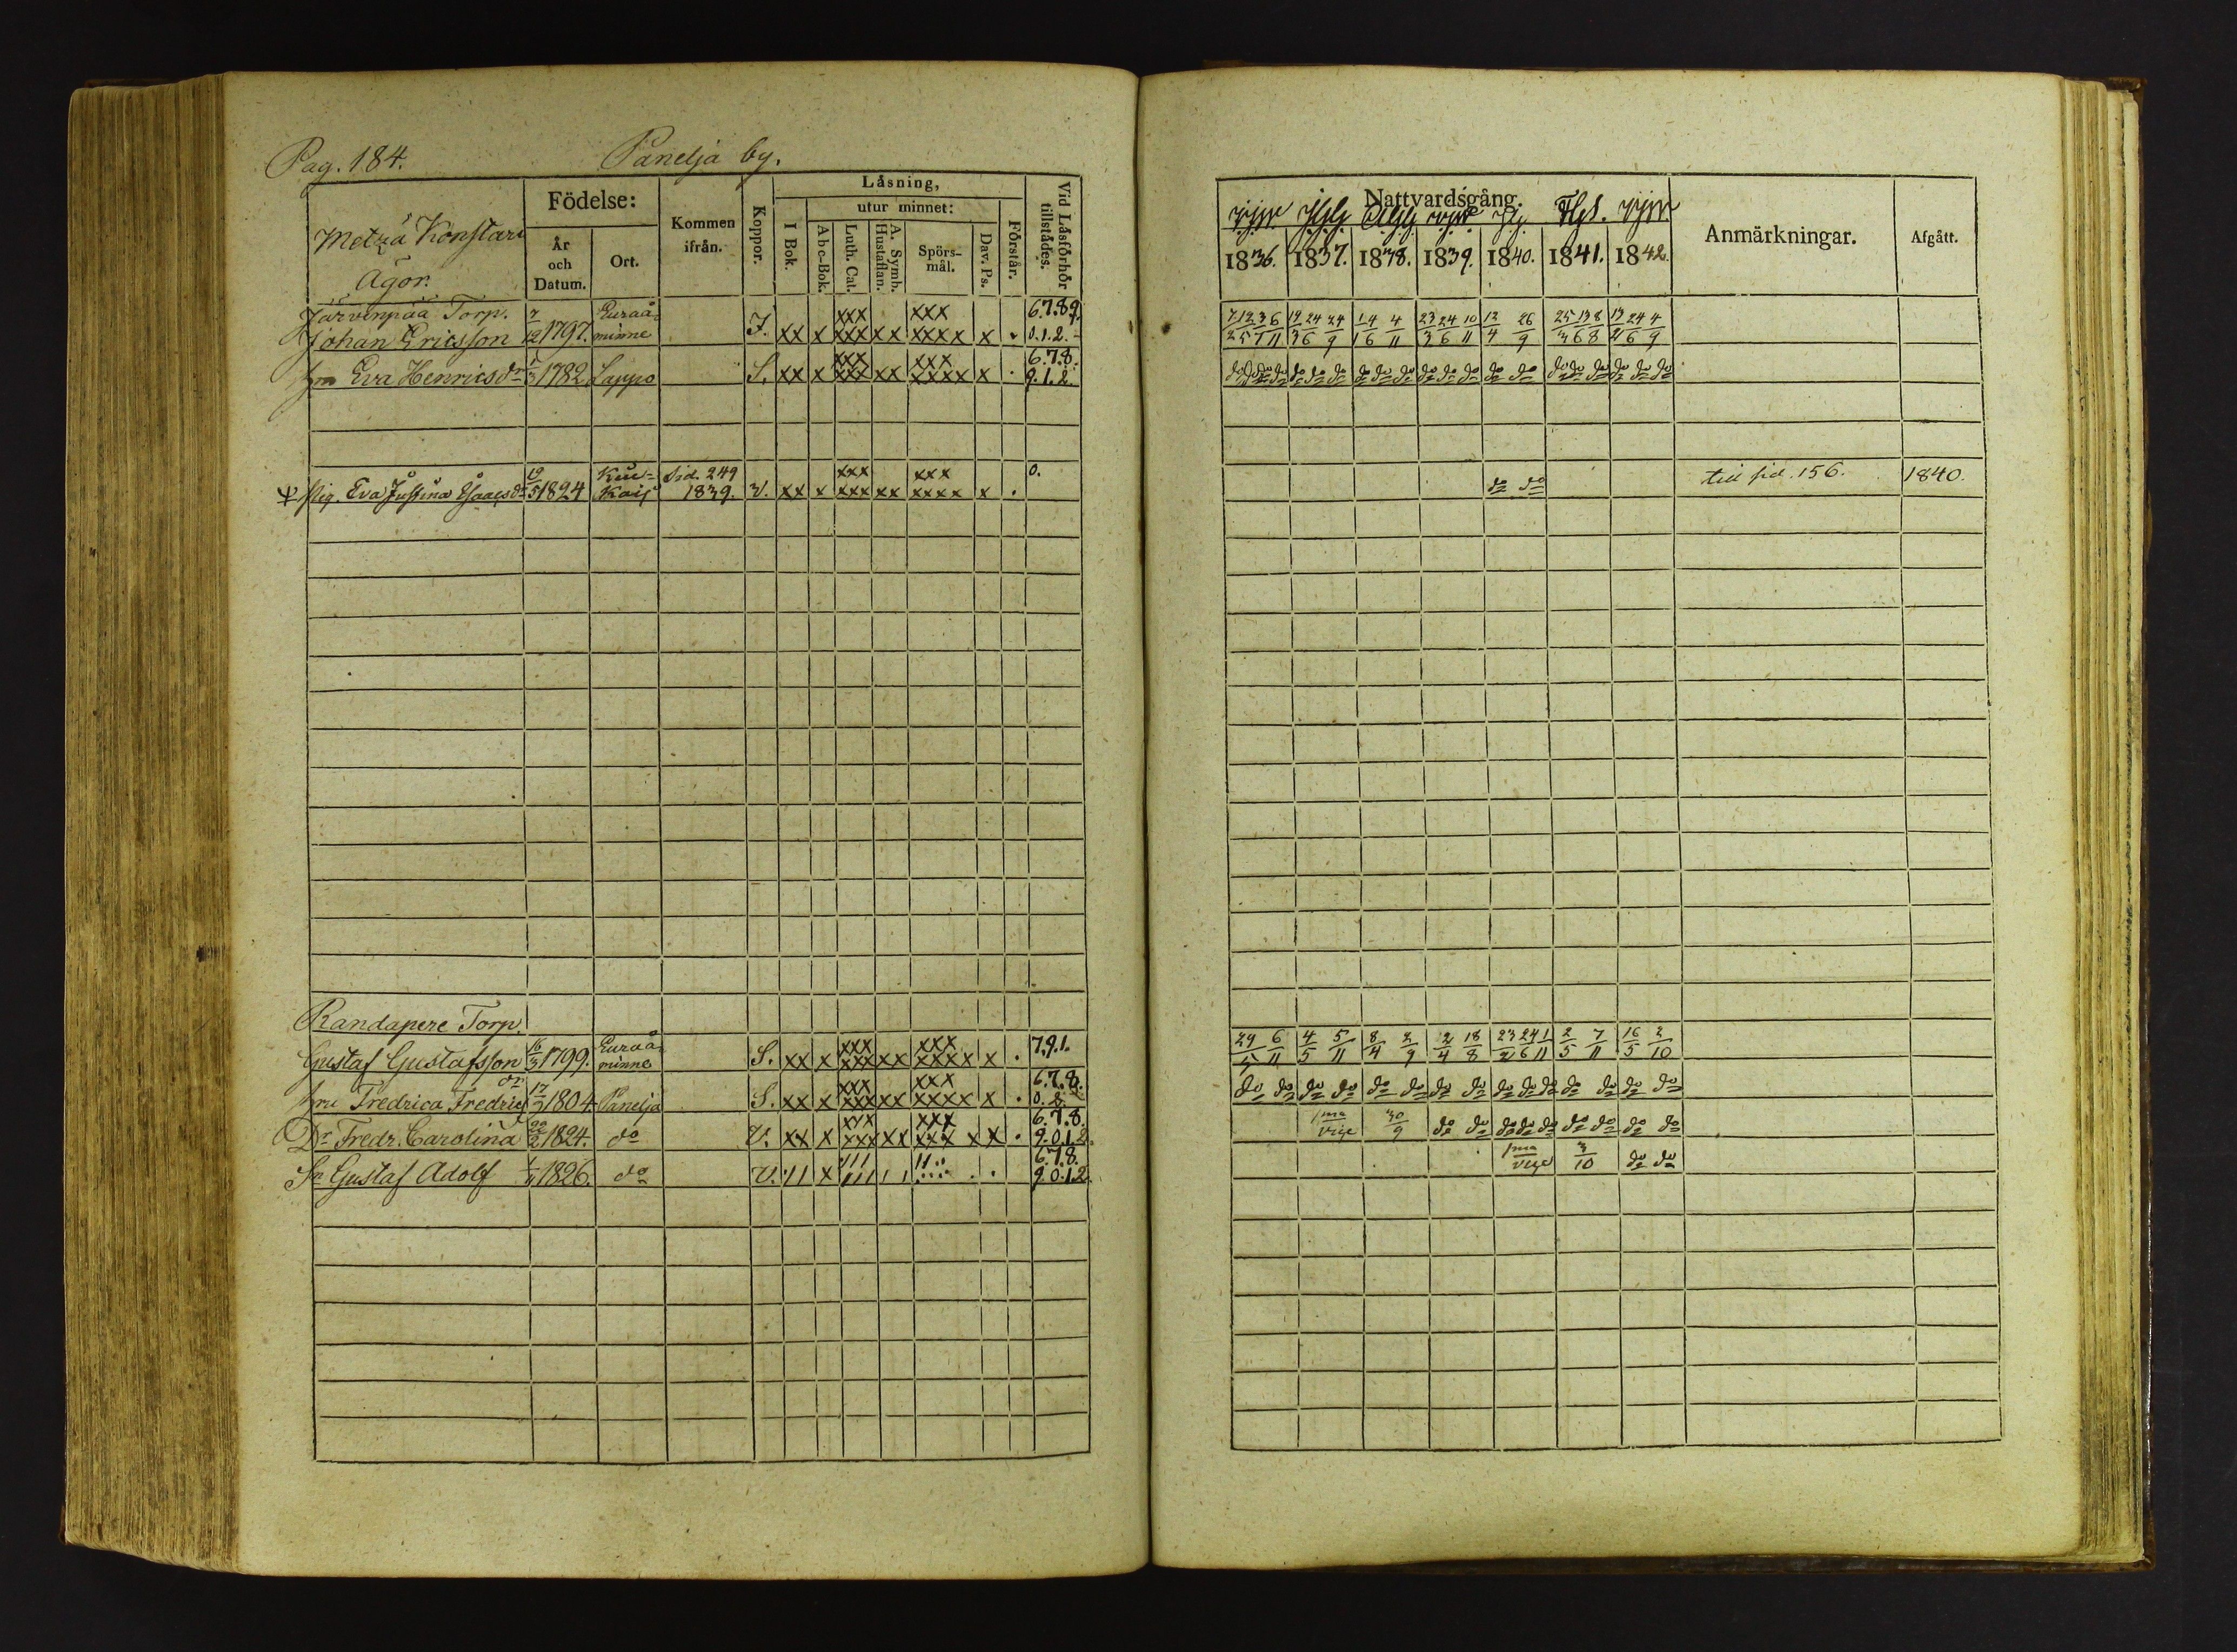 Pag. 184.
Panelja by.
Metzä Konstari
Ägor.
Födelse:
År
och
Datum.
Ort.
Kommen
ifrån.
Koppor.
Låsning,
I Bok.
utur minnet:
Abc-Bok.
Luth. Cat.
A. Symb.
Hustaflan.
Spörs-
mål.
Dav. Ps.
Förstår.
Vid Låsförhör
tillstådes.
Järvenpää Torp.
Johan Ericsson 1797. Euraå- minne xx x xxx xxx xx xxx xxxx x 6.7.8.9. 0.1.2.
Eva Henricsdr 1782. Lappo S. xx x xxx xxx xx xxx xxxx x 6.7.8. 9.1.2.
Pig. Eva Justina Isaacsdr 19/5 1824 Kais Sid. 249 1839. v. xx x xxx xxx xx xxx xxxx x . 0.
Randapere Torp.
Gustaf Gustafsson 16/3 1799. Euraå- minne S. xx x xxx xxx xx xxx xxxx x . 7.9.1.
Fredrica Fredricsdr 1804 Panelja S. xx x xxx xxx xx xxx xxxx x . 6.7.8. 0.2.
Dr Fredr. Carolina 22/2 1824. do V. xx x xxx xxx xx xxx xxx x x . 6.7.8. 9.0.1.2.
Sn Gustaf Adolf 1826. do V. 6.7.8. 9.0.1.2.
Nattvardsgång.
1836. 1837. 1838. 1839. 1840. 1841. 1842.
Anmärkningar.
Afgått.
7/2 12/5 3/7 6/11 19/3 24/6 24/9 1/1 4/6 4/11 23/3 24/6 10/11 12/4 26/9 25/3 13/6 8/8 13/2 24/6 4/9
do do do do do do do do do do do do do do do do do do do
do do till sid. 156. 1840.
29/5 6/11 4/5 5/11 8/4 2/9 2/4 18/8 23/2 24/6 1/11 2/5 7/11 16/5 2/10
do do do do do do do do do do do do do do do
1ma vice 30/9 do do do do do do do do do
1ma vice 3/10 do do